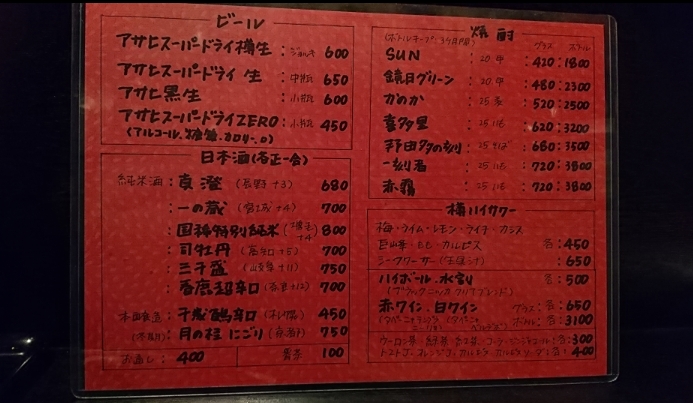 ビール
アサヒスーパードライ樽生：ジョッキ 600
アサヒスーパードライ 生：中瓶 650
アサヒ黒生：小瓶 600
アサヒスーパードライZERO：小瓶 450
(アルコール.糖質.カロリー.0)
日本酒(各正一合)
純米酒：真澄 (長野+3) 680
：一の蔵 (宮城+4) 700
：国稀特別純米 800
：司牡丹 (高知+5) 700
：三千盛 (岐阜+11) 750
：春鹿超辛口 (奈良+12) 700
本醸造：千歳鶴辛口 (札幌) 450
：月の桂にごり (京都) 750
お通し：400
100
焼酎
グラス ボトル
SUN：20 ：420：1800
鏡月グリーン：20 ：480：2300
かのか：25 麦：520：2500
喜多里：25 いも：620：3200
：25 ：680：3500
一刻者：25 いも：720：3800
赤霧：25 いも：720：3800
梅ハイサワー
梅・ライム・レモン・ライチ・カシス
巨山峯・もも・カルピス 各：450
シークワーサー ：650
ハイボール.水割り 各：500
(ブラックニッカ クリアブレンド)
赤ワイン.白ワイン グラス：各：650
ボトル：各：3100
ウーロン茶・緑茶 コーラ・ジンジャエール：各：300
トマト オレンジ カルピス カルピスソーダ：各：400